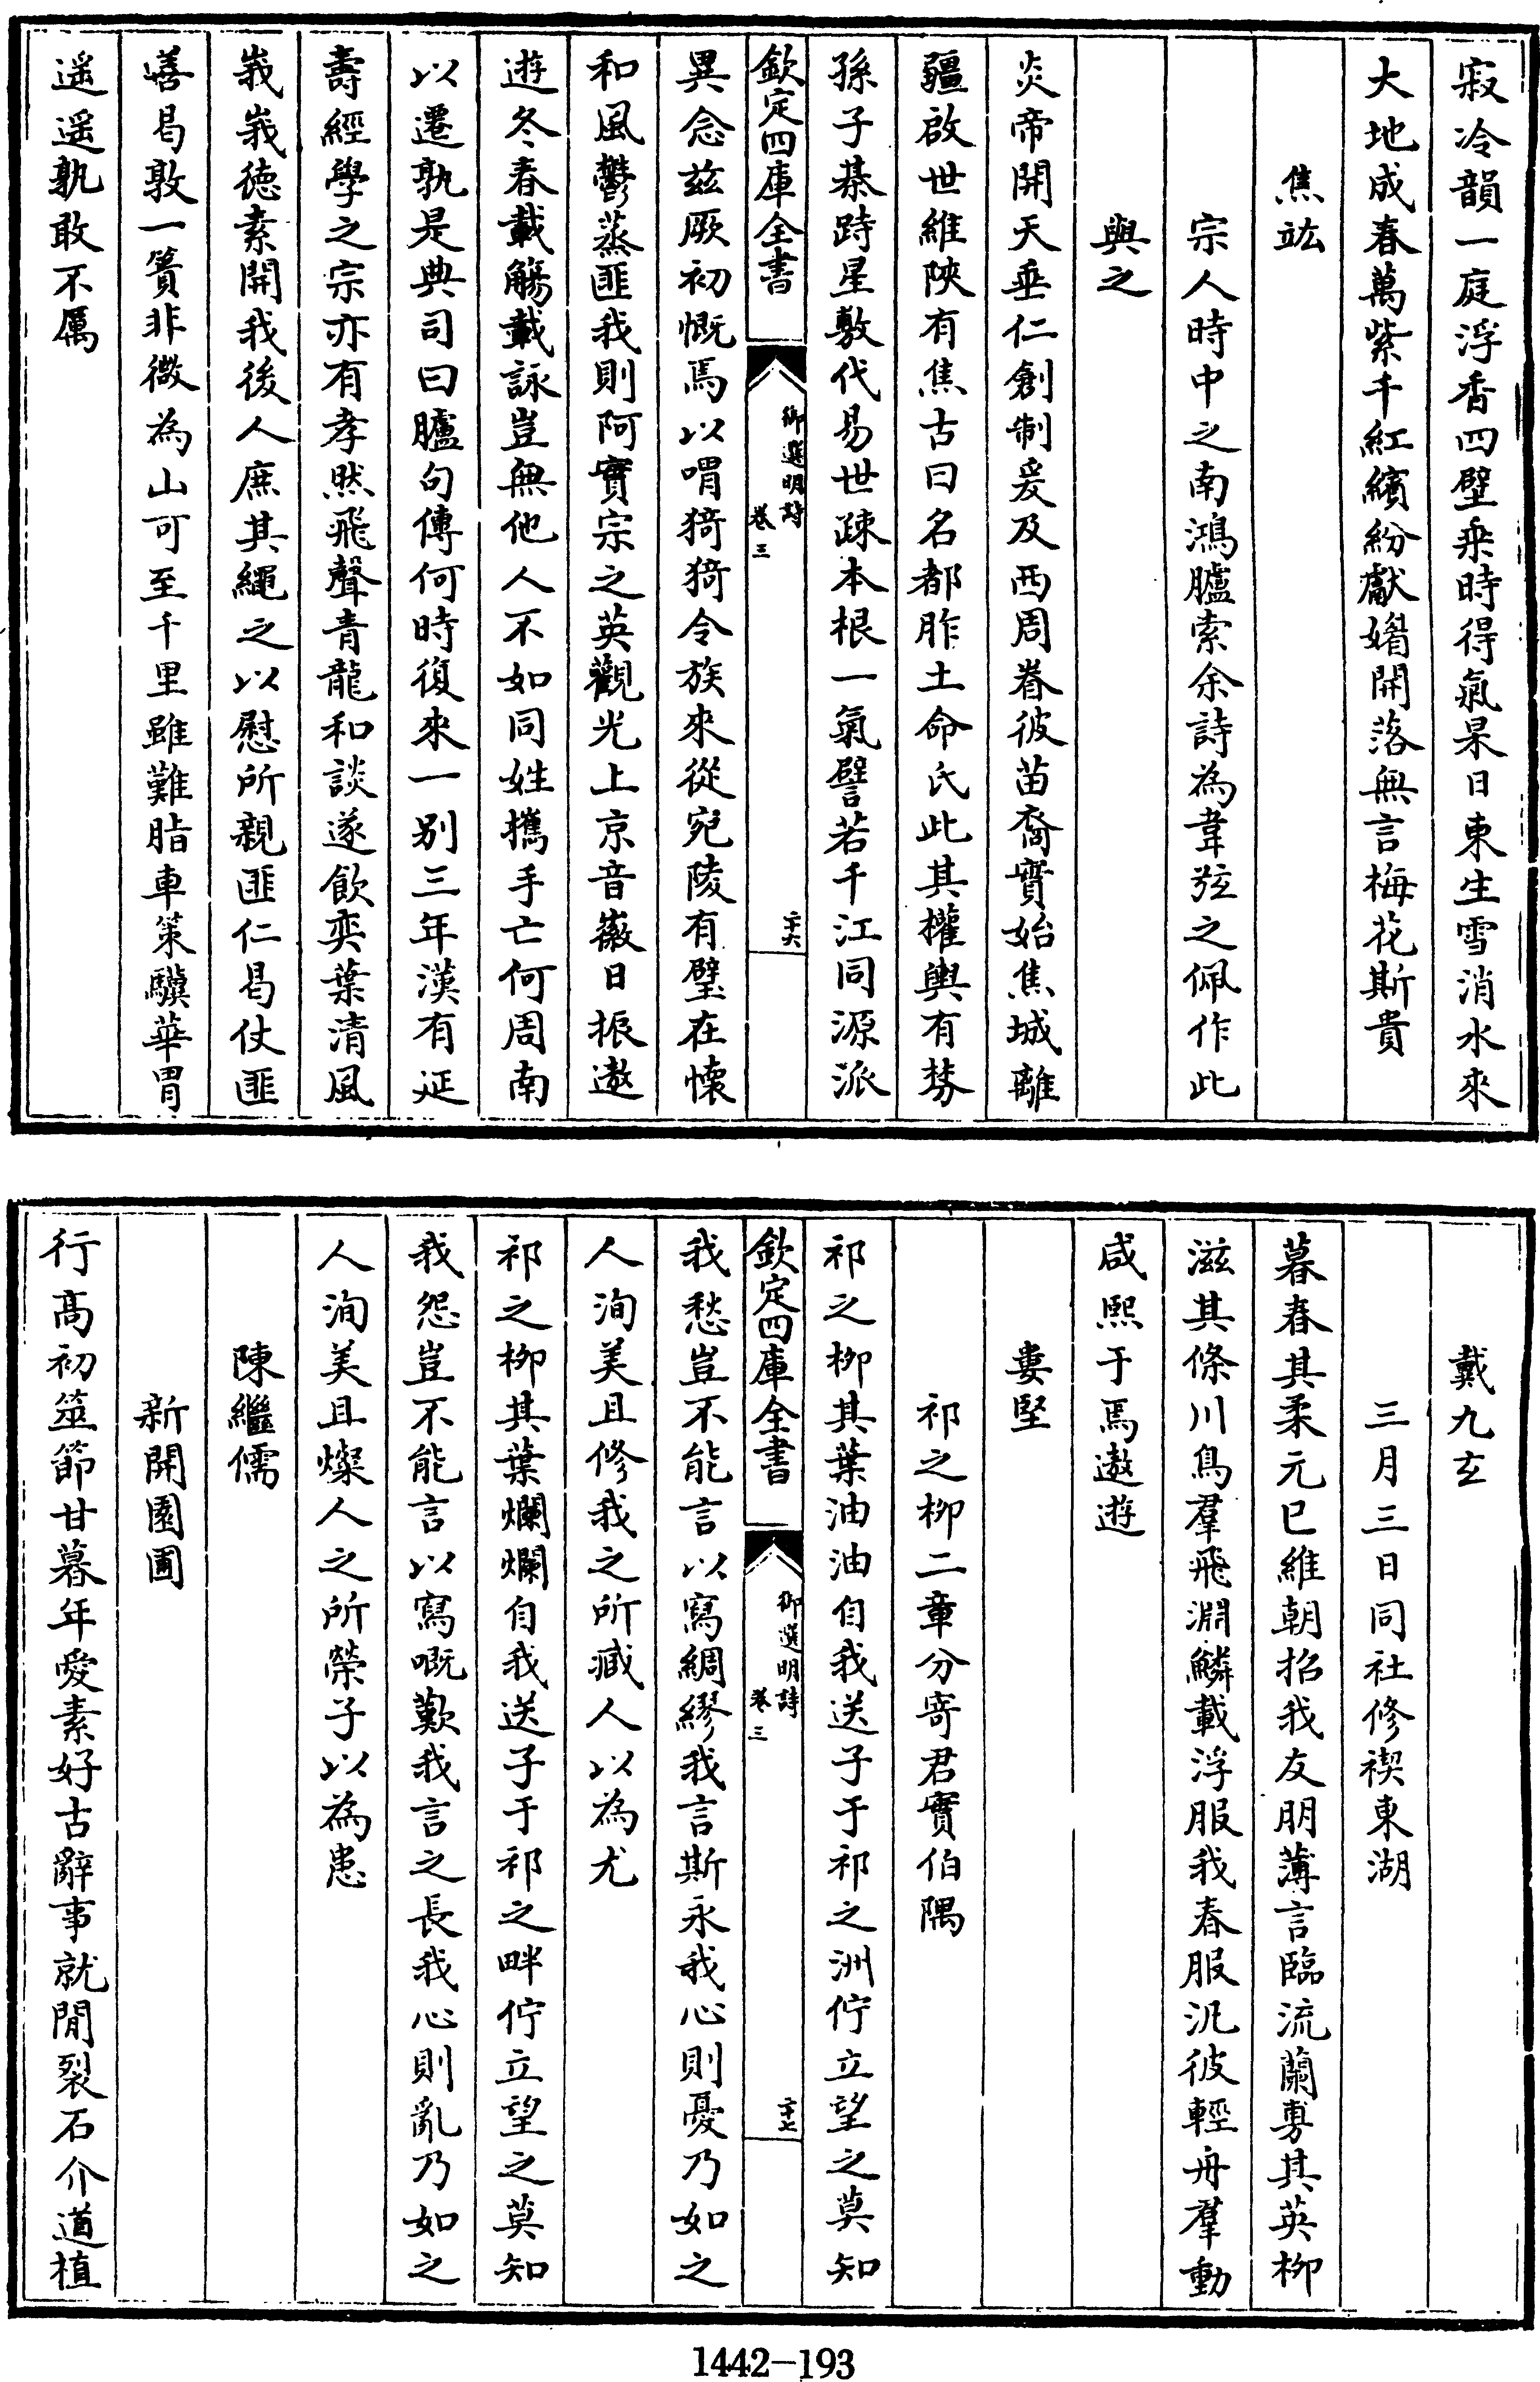 寂冷韻一庭浮香四壁乘時得氣杲日東生雪消水來
大地成春萬紫千紅繽紛獻媚開落無言梅花斯貴
焦竑
宗人時中之南鴻臚索余詩為韋弦之佩作此
與之
炎帝開天垂仁創制爰及西周眷彼苗裔實始焦城離
疆啟世維陜有焦古曰名都胙土命氏此其權輿有棼
孫子棊跱星敷代易世疎本根一氣譬若千江同源派
欽定四庫全書
御選明詩
卷三
二十六
異念玆厥初慨焉以喟猗猗令族來從宛陵有璧在懷
和風鬱蒸匪我則阿實宗之英觀光上京音徽日振遨
遊冬春載觴載詠豈無他人不如同姓攜手亡何周南
以遷孰是典司曰臚句傳何時復來一别三年漢有延
壽經學之宗亦有孝然飛聲青龍和談遂飲奕葉清風
峩峩德素開我後人庶其繩之以慰所親匪仁曷仗匪
善曷敦一簣非微為山可至千里雖難脂車策驥華冑
遥遥孰敢不厲
戴九玄
三月三日同社修禊東湖
暮春其柔元巳維朝招我友朋薄言臨流蘭旉其英柳
滋其條川鳥羣飛淵鱗載浮服我春服汎彼輕舟羣動
咸熙于焉遨遊
婁堅
祁之柳二章分寄君實伯隅
祁之柳其葉油油自我送子于祁之洲佇立望之莫知
欽定四庫全書
御選明詩
卷三
二十七
我愁豈不能言以寫綢繆我言斯永我心則憂乃如之
人洵美且修我之所臧人以為尤
祁之柳其葉爛爛自我送子于祁之畔佇立望之莫知
我怨豈不能言以寫嘅歎我言之長我心則亂乃如之
人洵美且燦人之所榮子以為患
陳繼儒
新開園圃
行高初筮節甘暮年愛素好古辭事就閒裂石介道植
1442-193